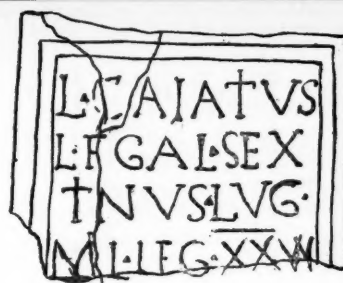 L·CAIATVS
L·F GAL·SEX
TNVS·LVG·
MIL·LEG·XXVI